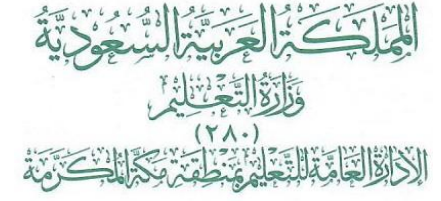 المملكة العربية السعودية
وزارة التعليم
(٢٨٠)
الإدارة العامة للتعليم بمنطقة مكة المكرمة